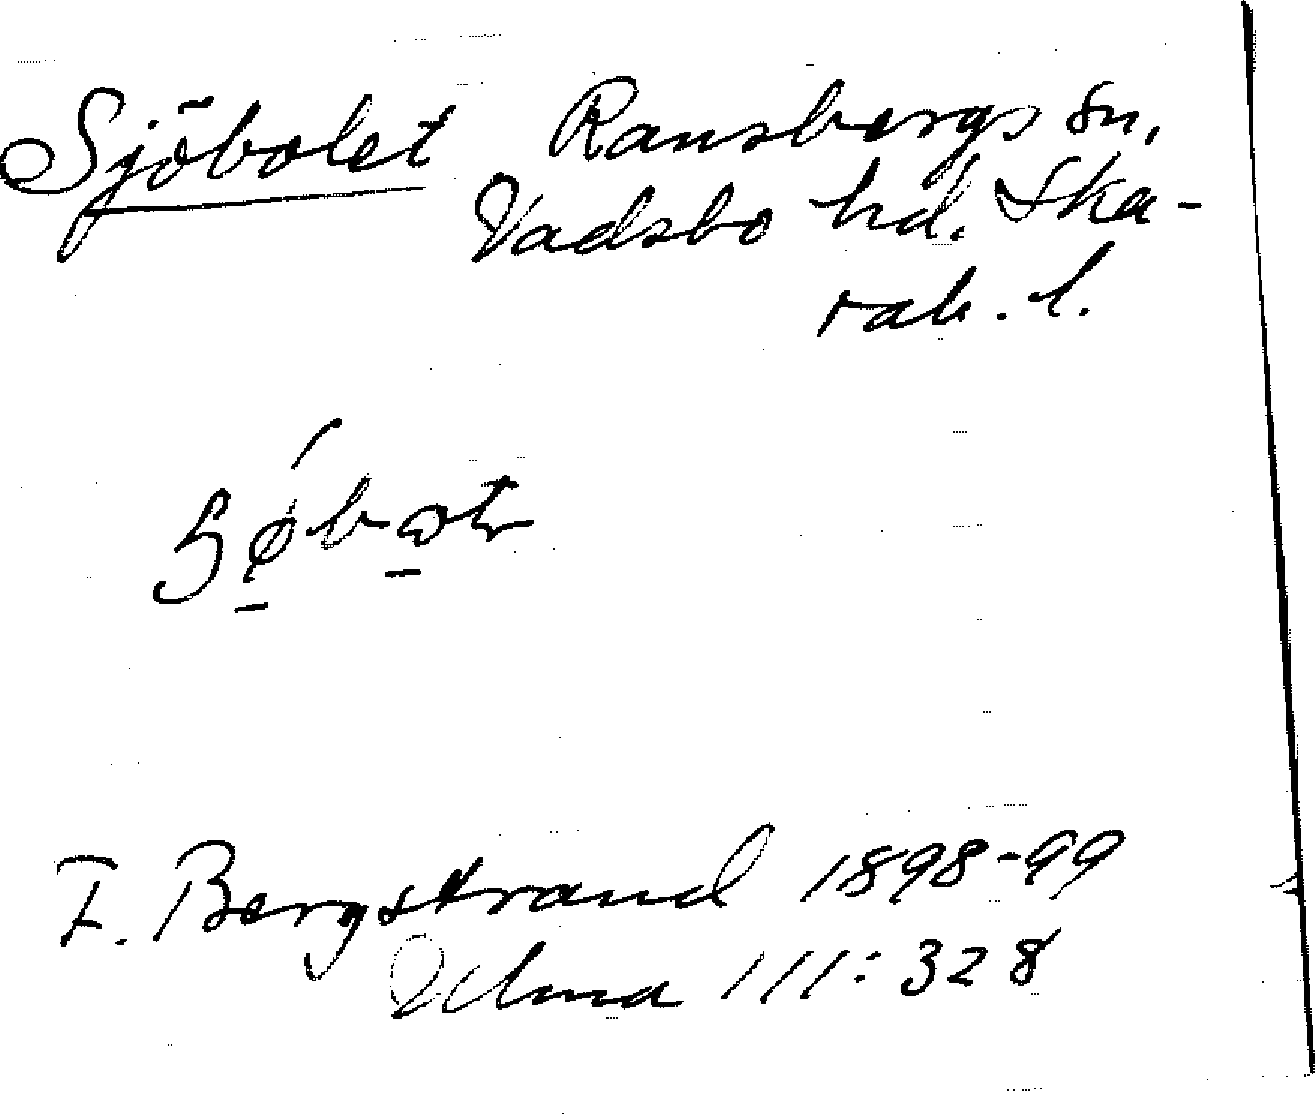 Sjöbolet Ransbergs sn,
Vadsbo hd. Ska-
rab. l.
F. Bergstrand 1898-99
111:328